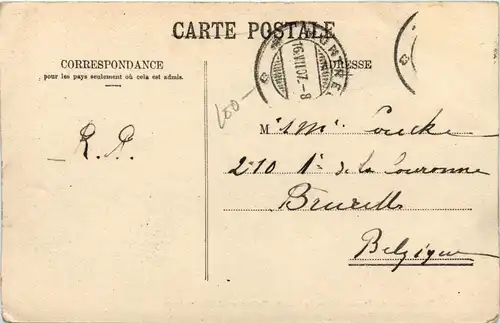 CARTE POSTALE
CORRESPONDANCE
pour les pays seulement où cela est admis.
ADRESSE
100-
R. P.
M
210 de la Couronne
Bruxelles
Belgique